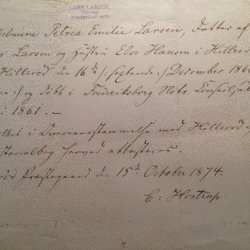 HANS LARSEN
helmine Petrea Emilie Larsen, Datter af
Larsen og Hustru Else Hansen i Hilleröd
Hilleröd den 16de /: sextende :/ December 186
og döbt i Frederiksborg Slots
i 1861. —
i Overensstemmelse med Hilleröd
attesteres.
Præstegaard den 15de October 1874.
C: Hostrup